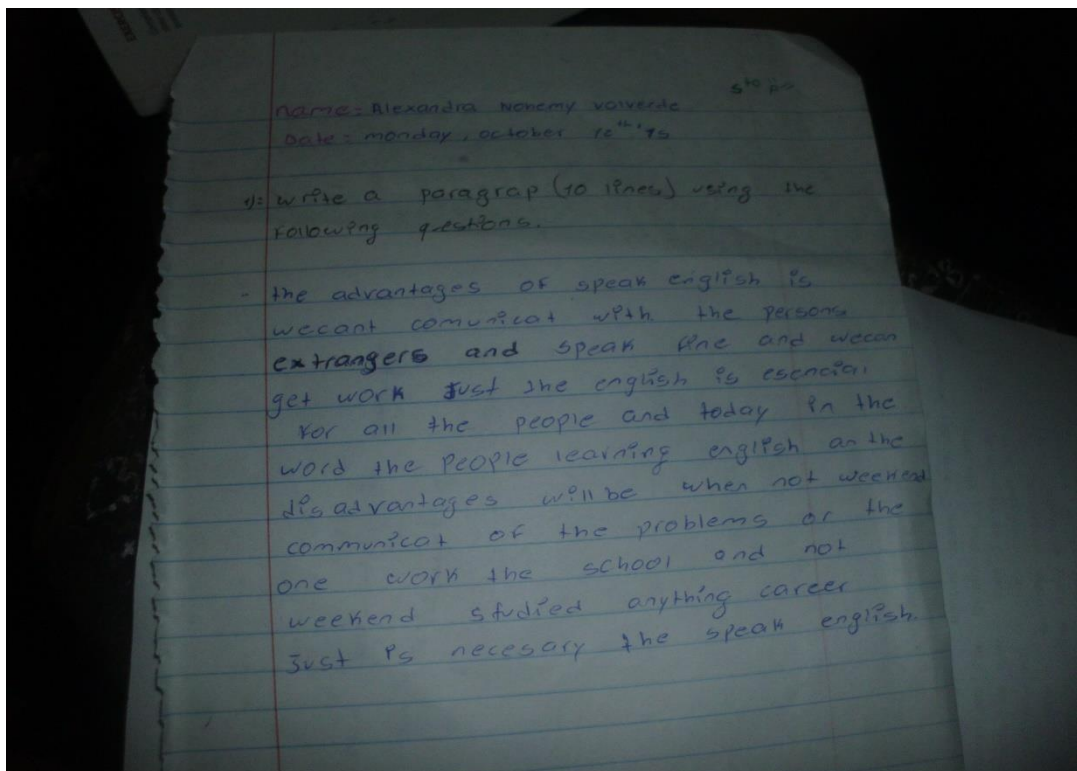 name = Alexandra Nohemy Valverde
Date = monday, october 10th '15
1)= write a paragrap (10 lines) using the
following questions.
- the advantages of speak english is
wecant comunicat with the persons
extrangers and speak fine and wecan
get work Just the english is esencial
for all the people and today in the
word the people learning english an the
disadvantages will be when not weekend
communicat of the problems or the
one work the school and not
weekend studied anything career
Just is necesary the speak english.